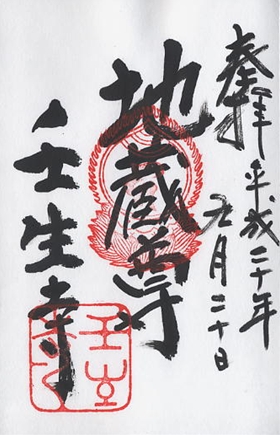 奉拝
平成二十年
九月二十日
地蔵尊
壬生寺